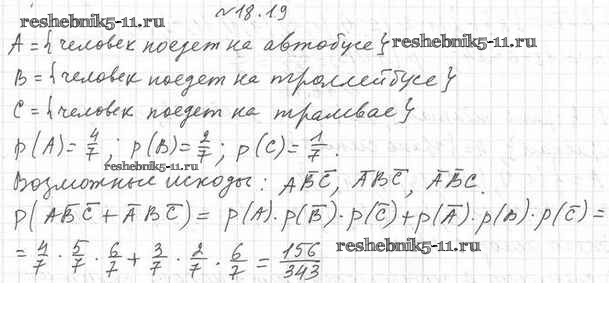 №18.19
reshebnik5-11.ru
A = {человек поедет на автобусе} reshebnik5-11.ru
B = {человек поедет на троллейбусе}
C = {человек поедет на трамвае}
p(A)=4/7; p(B)=2/7; p(C)=1/7.
reshebnik5-11.ru
Возможные исходы: AB̅C̅, A̅BC̅, A̅B̅C.
p(AB̅C̅+A̅BC̅) = p(A)·p(B̅)·p(C̅)+p(A̅)·p(B)·p(C̅)=
= 4/7 · 5/7 · 6/7 + 3/7 · 2/7 · 6/7 = 156/343 reshebnik5-11.ru